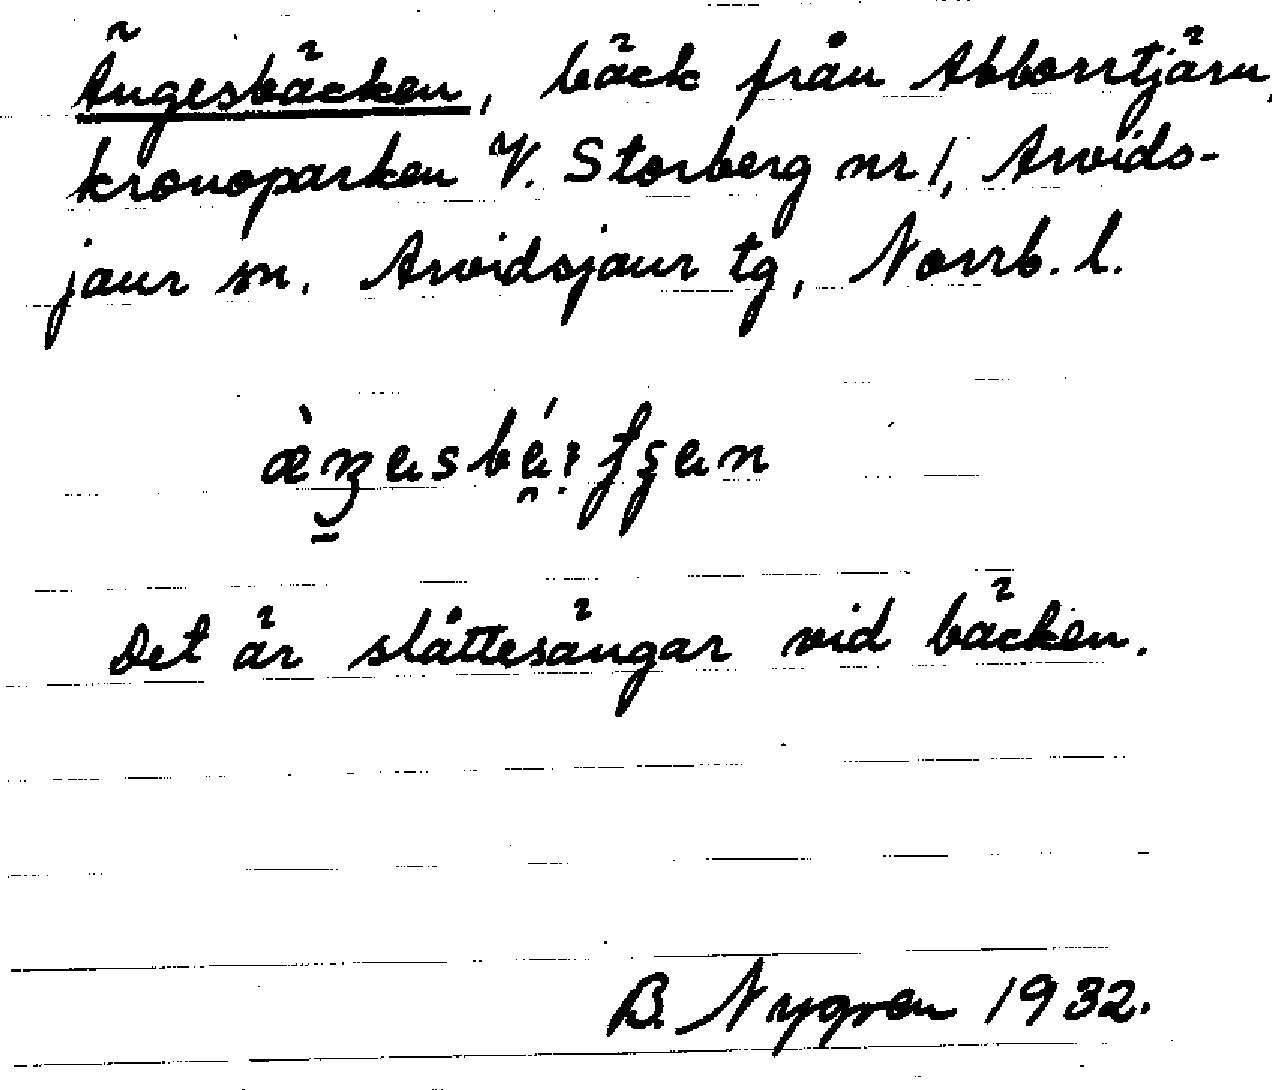 Ängesbäcken, bäck från Abborrtjärn,
kronoparken V. Storberg nr 1, Arvids-
jaur sn. Arvidsjaur tg, Norrb. l.
Det är slåttesängar vid bäcken.
B. Nygren 1932.